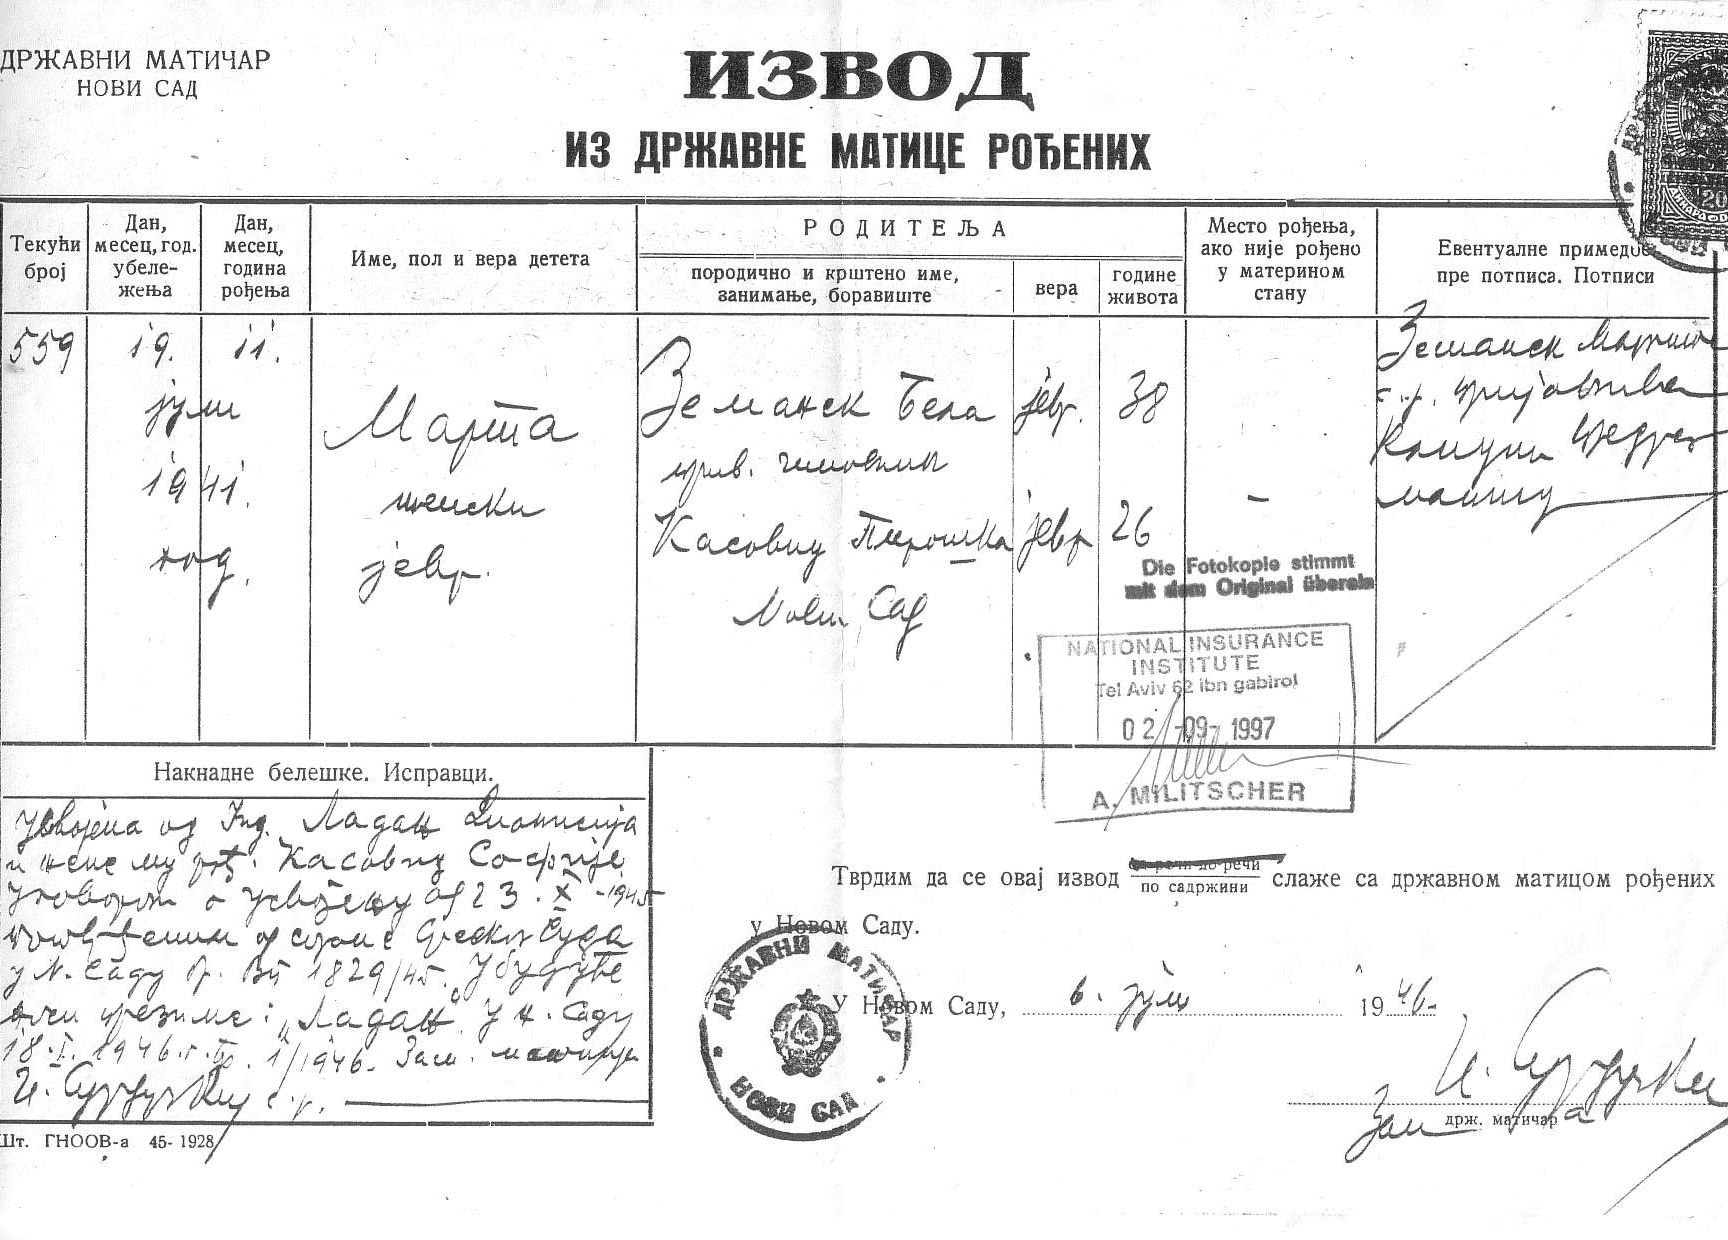 ДРЖАВНИ МАТИЧАР
НОВИ САД
ИЗВОД
ИЗ ДРЖАВНЕ МАТИЦЕ РОЂЕНИХ
Текући број
Дан, месец, год. убеле-жења
Дан, месец, година рођења
Име, пол и вера детета
РОДИТЕЉА
породично и крштено име, занимање, боравиште
вера
године живота
Место рођења, ако није рођено у материном стану
Евентуалне примедбе пре потписа. Потписи
559
19. 11.
јули
1941.
год.
Марта
женски
јевр.
Земанек Бела јевр. 38
прив. чиновник
Касовиц Пирошка јевр 26
Нови Сад
–
Земанек
с.р. пријавитељ
матичар
Die Fotokopie stimmt
mit dem Original überein
NATIONAL INSURANCE
INSTITUTE
Tel Aviv 62 ibn gabirol
02 -09- 1997
A. MILITSCHER
Накнадне белешке. Исправци.
Усвојена од Инж. Ладањ Дионисија
и жене му рођ. Касовиц Софије
Уговором о усвојењу од 23. X - 1945
од стране Среског Суда
у Н. Саду Бр. 1829/45. Убудуће
презиме: „Ладањ" У Н. Саду
18. I. 1946. г. 1/1946. Зам. матичара
с.р.
Шт. ГНООВ-а 45- 1928
Тврдим да се овај извод од речи до речи / по садржини слаже са државном матицом рођених
у Новом Саду.
У Новом Саду, 6. јули 1946-
ДРЖАВНИ МАТИЧАР
НОВИ САД
Зам држ. матичара